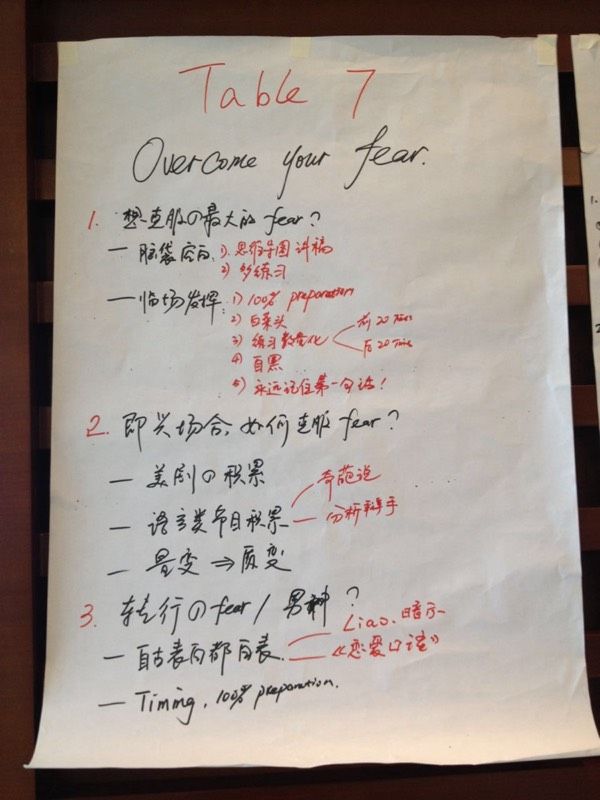 Table 7
Overcome your fear.
1. 想克服の最大的 fear?
— 脑袋空白 1). 思维导图 讲稿
2) 多练习
— 临场发挥: 1) 100% preparation
2) 白菜头
前 20 Times
3) 练习数量化
后 20 Time
4) 自黑
5) 永远记住第一句话!
2. 即兴场合, 如何克服 fear?
— 美剧の积累
奇葩说
— 语言类节目积累 — 分析辩手
— 量变 ⇒ 质变
3. 转行の fear / 男神?
Liao. 暗示
— 自古表白都白表. 《恋爱口
— Timing, 100% preparation.
1.